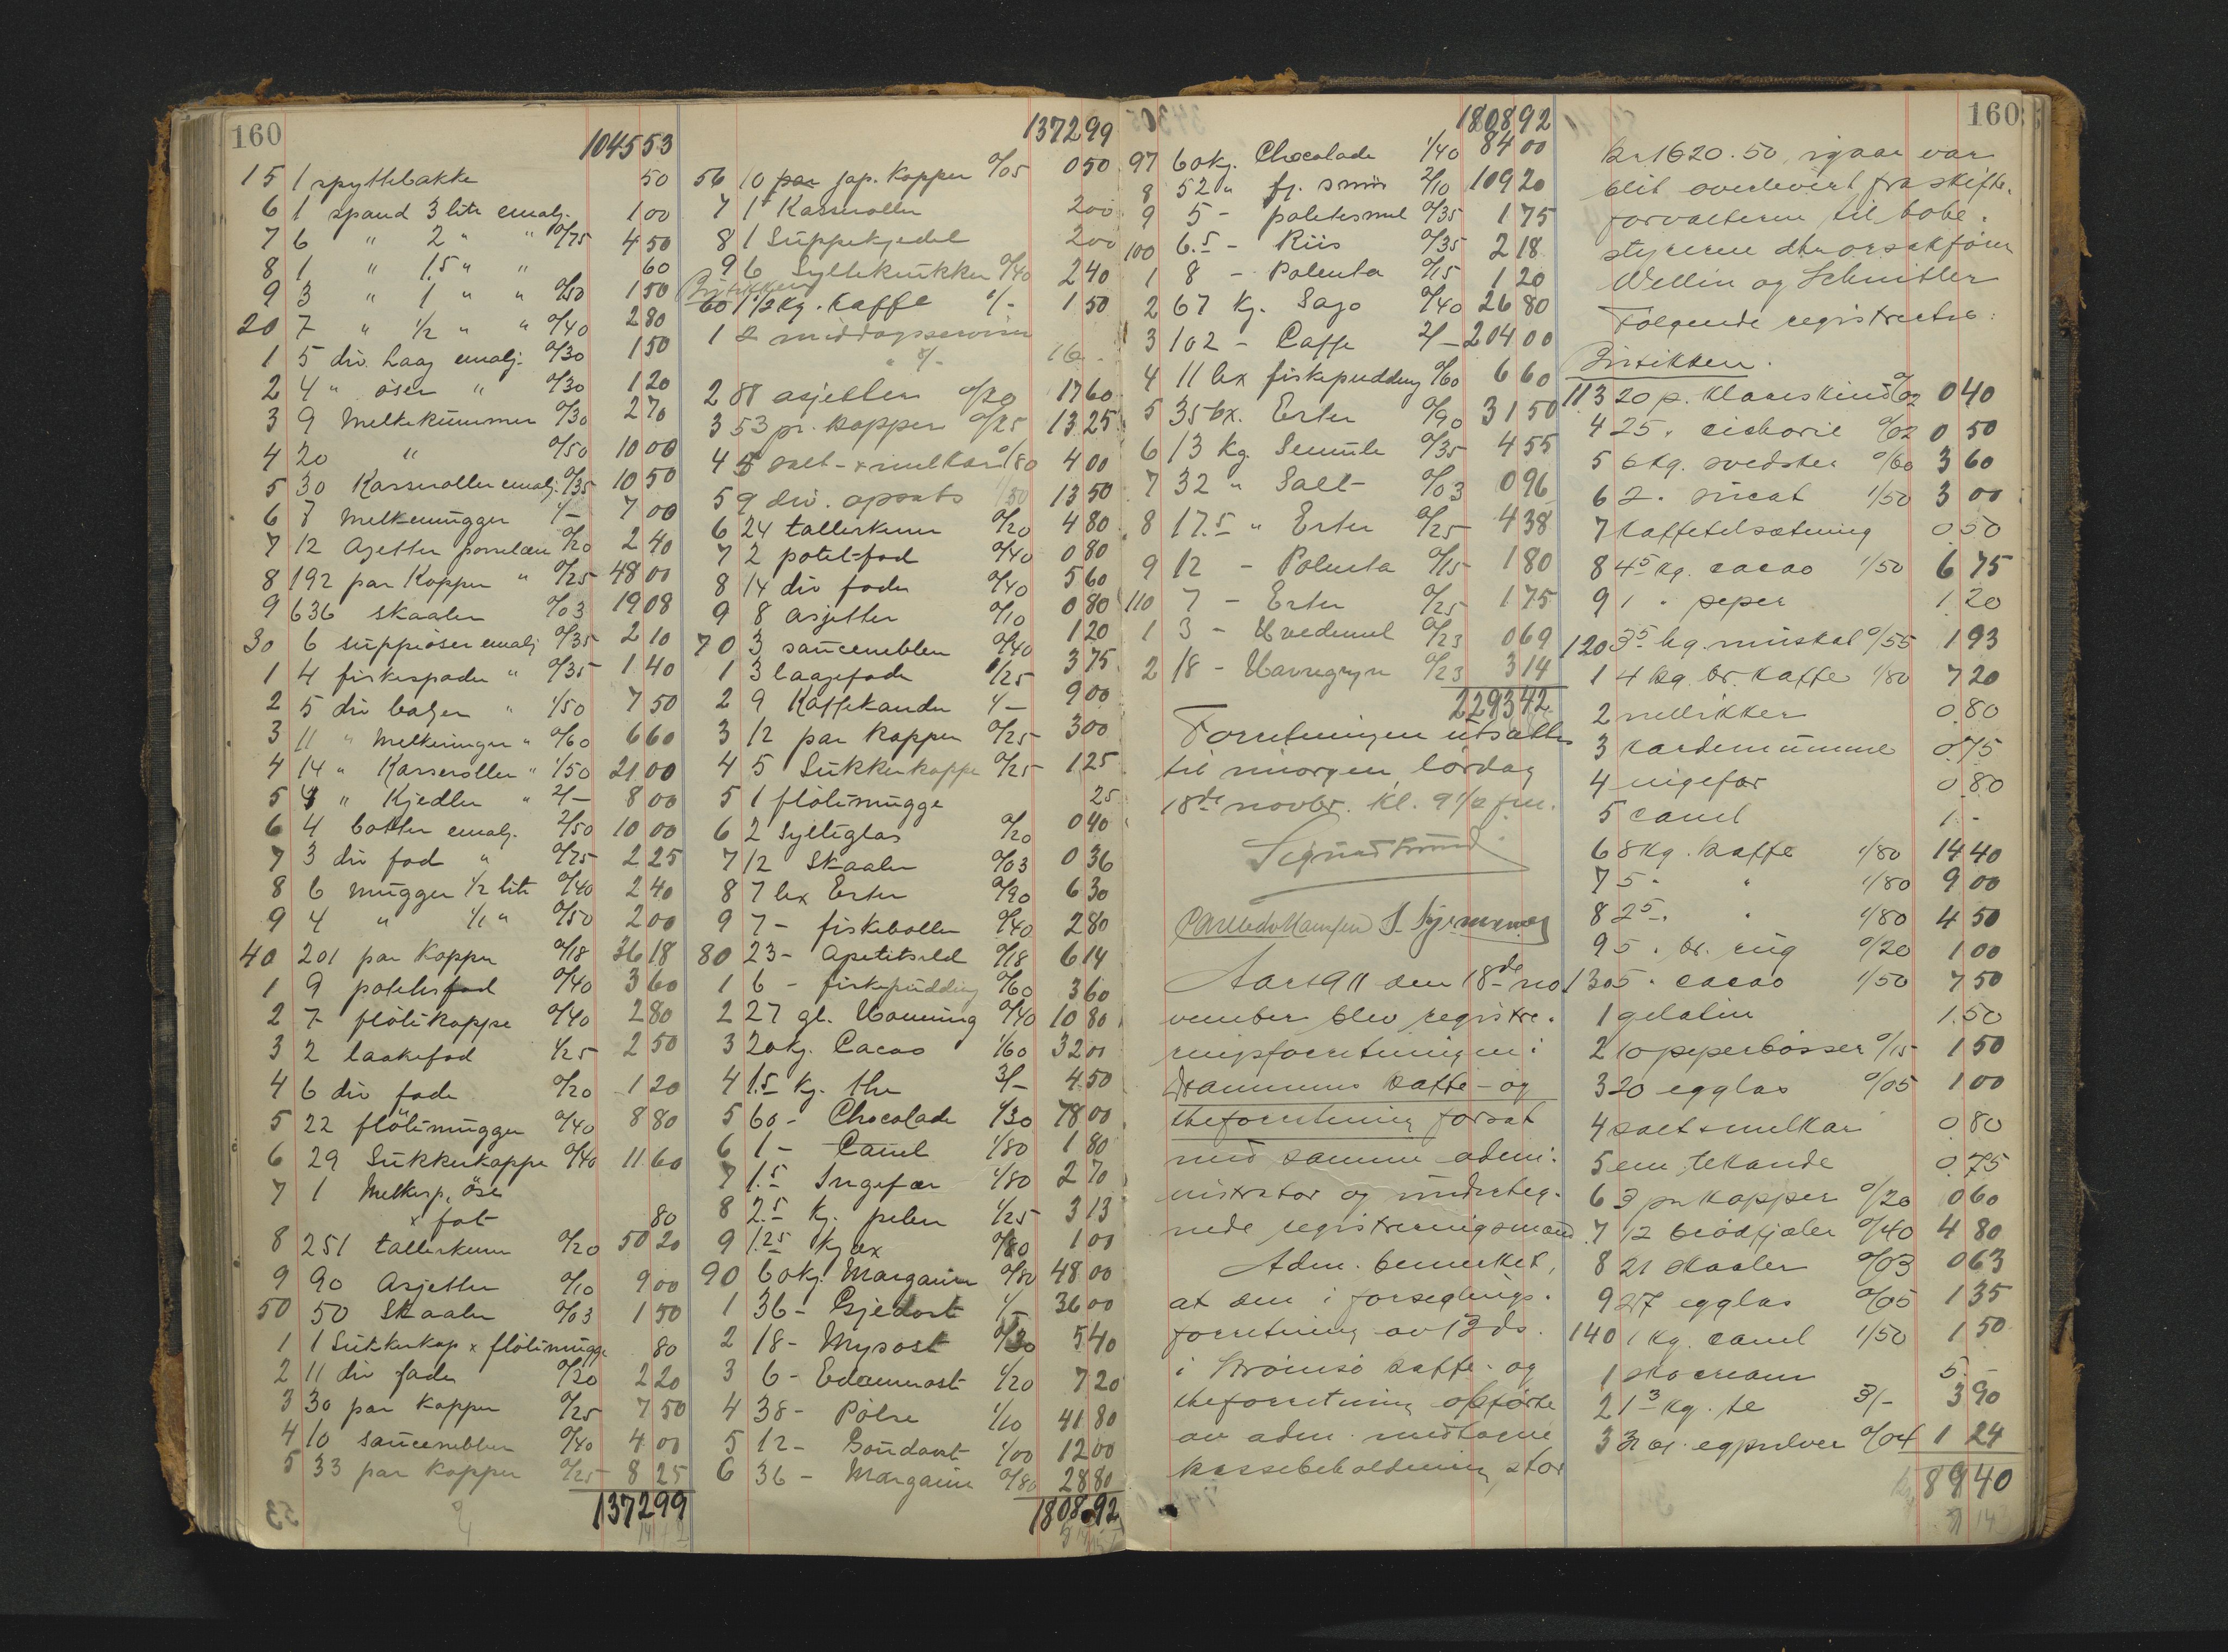 160
104553
15 1 spyttebakke 50
6 1 spand 3 lite emalj. 100
7 6 " 2 " " 0/75 450
8 1 " 1,5 " " 60
9 3 " 1 " " 0/50 150
20 7 " 1/2 " " 0/40 280
1 5 div. Laag emalj. 0/30 150
2 4 " öser " 0/30 120
3 9 Melkekummer 0/30 270
4 20 " 0/50 1000
5 30 Kasseroller emalj. 0/35 1050
6 7 Melkemugger 1/- 700
7 12 Asjetter porselæn 0/20 240
8 192 par Kopper " 0/25 4800
9 636 skaaler 0/03 1908
30 6 suppeöser emalj 0/35 210
1 4 fiskespader " 0/35 140
2 5 div baljer " 1/50 750
3 11 " Melkeringer " 0/60 660
4 14 " Kasseroller " 1/50 2100
5 4 " Kjedler " 2/- 800
6 4 bötter emalj. 2/50 1000
7 3 div fad " 0/75 225
8 6 Mugger 1/2 lite 0/40 240
9 4 " 1/1 " 0/50 200
40 201 par Kopper 0/18 3618
1 9 potetesfad 0/40 360
2 7 flötekoppe 0/40 280
3 2 laakefad 1/25 250
4 6 div fade 0/20 120
5 22 flötemugger 0/40 880
6 29 Sukkerkoppe 0/40 1160
7 1 Melkesp., öse
x fat 80
8 251 tallerkener 0/20 5020
9 90 Asjetter 0/10 900
50 50 Skaaler 0/03 150
1 1 Sukkerkop x flötemugge 80
2 11 div fade 0/20 220
3 30 par Kopper 0/25 750
4 10 saucenebber 0/40 400
5 33 par Kopper 0/25 825
137299
137299
56 10 par jap. Kopper 0/05 050
7 1 Kasseroller 200
8 1 Suppekjedel 200
9 6 Syltekrukker 0/40 240
Butikken
60 1 1/2 kg. Kaffe 1/- 150
1 2 middagsservise
" 8/- 16 -
2 88 asjetter 0/20 1760
3 53 pr. kopper 0/25 1325
4 5 salt- x melkar 0/80 400
5 9 div. opsats 1/50 1350
6 24 tallerkener 0/20 480
7 2 potet-fad 0/40 080
8 14 div fade 0/40 560
9 8 asjetter 0/10 080
70 3 saucenebber 0/40 120
1 3 laagefade 1/25 375
2 9 Kaffekander 1/- 900
3 12 par Kopper 0/25 300
4 5 Sukkerkoppe 0/25 125
5 1 flötemugge 25
6 2 Sylteglas 0/20 040
7 12 Skaaler 0/03 036
8 7 bx Erter 0/90 630
9 7 - fiskeboller 0/40 280
80 23 - Apetitsild 0/18 614
1 6 - fiskepudding 0/60 360
2 27 gl. Honning 0/40 1080
3 20 kg. Cacao 1/60 3200
4 1.5 kg. the 3/- 450
5 60 - Chocolade 1/30 7800
6 1 - Canel 1/80 180
7 1.5 Ingefær 1/80 270
8 2.5 kg. peber 1/25 313
9 1.25 kg kex 0/80 100
90 60 kg. Margarin 0/80 4800
1 36 - Gjedost 1/- 3600
2 18 - Mysost 0/30 540
3 6 - Edammerost 1/20 720
4 38 - Pölse 1/10 4180
5 12 - Goudaost 1/00 1200
6 36 - Margarin 0/80 2880
180892
180892
97 60 kg. Chocolade 1/40 8400
8 52 " fj. smör 2/10 10920
9 5 - potetesmel 0/35 175
100 6.5 - Riis 0/35 218
1 8 - Polenta 0/15 120
2 67 kg. Sago 0/40 2680
3 102 - Caffe 2/- 20400
4 11 bx fiskepudding 0/60 660
5 35 bx. Erter 0/90 3150
6 13 kg. Semule 0/35 455
7 32 " Salt 0/03 096
8 17.5 " Erter 0/25 438
9 12 - Polenta 0/15 180
110 7 - Erter 0/25 175
1 3 - Hvedemel 0/23 069
2 18 - Havregryn 0/23 314
229342
Forretningen utsættes
til imorgen, lördag
18de novbr. kl. 9 1/2 fm.
Aar 1911 den 18de no
vember blev registre-
ringsforretningen i
Drammens kaffe- og
theforretning forsat
med samme admi-
nistrator og underteg-
nede registreringsmænd.
Adm. bemerket,
at den i forseglings-
forretning av 13 ds.
i Strömsö kaffe- og
theforretning opförte
av adm. mottagne
kassebeholdning, stor
160
kr 1620.50, igaar var
blit overlevert fra skifte-
forvalteren til bobe-
styrerne d'hr. orsakförer
Wellin og Schnitler
Fölgende registrertes:
Butikken.
113 20 p. klareskind 0/02 040
4 25 " cichorie 0/02 050
5 6 kg. svedsker 0/60 360
6 2 " sucat 1/50 300
7 kaffetilsætning 050
8 4.5 kg. cacao 1/50 675
9 1 " peper 120
120 3.5 kg. muskat 0/55 193
1 4 kg. br. kaffe 1/80 720
2 nellikker 0.80
3 kardemumme 0.75
4 ingefær 0.80
5 canel 1.-
6 8 kg. kaffe 1/80 1440
7 5 " " 1/80 900
8 2.5 " " 1/80 450
9 5 " br. rug 0/20 100
130 5 " cacao 1/50 750
1 gelatin 1.50
2 10 peperbösser 0/15 150
3 20 egglas 0/05 100
4 salt x melkar 0.80
5 em. tekande 0.75
6 3 pr kopper 0/20 060
7 12 brödfjæler 0/40 480
8 21 skaaler 0/03 063
9 27 egglas 0/05 135
140 1 kg. canel 1/50 150
1 skocream 5.-
2 1.3 kg. te 3/- 390
3 31 æ. egpulver 0/04 124
kr 8940